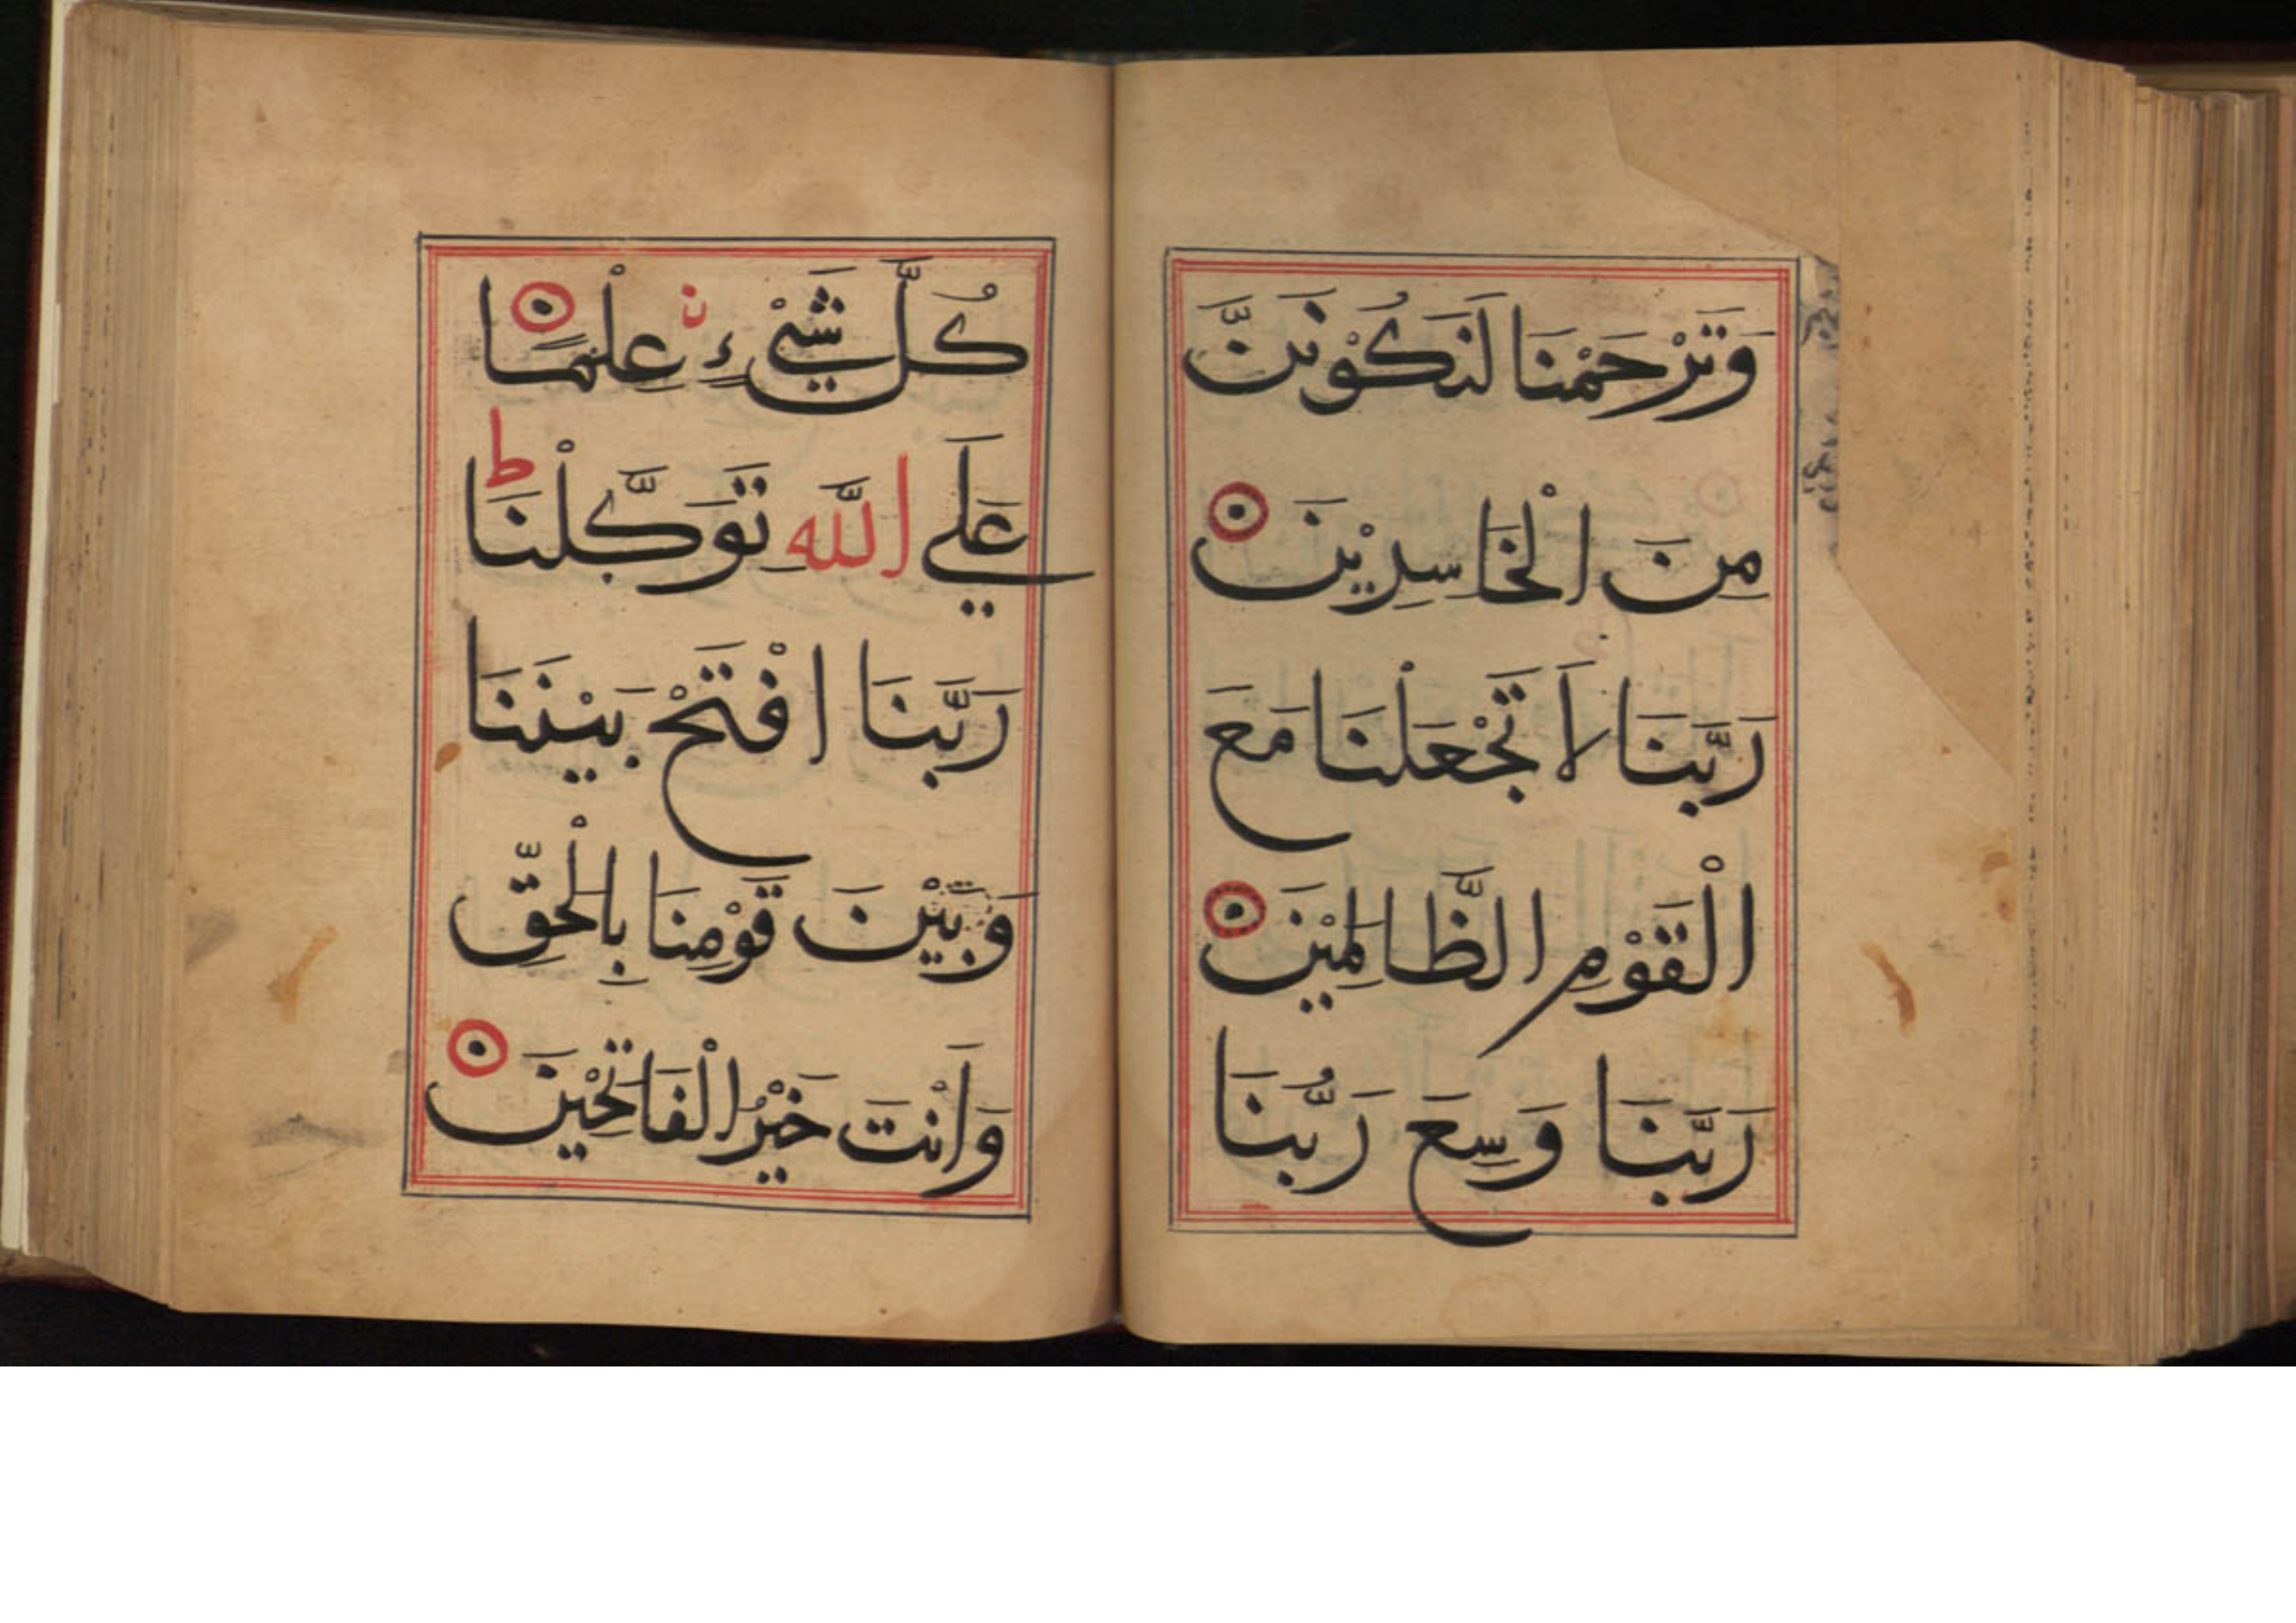 وَتَرْحَمْنَا لَنَكُوْنَنَّ
مِنَ الْخَاسِرِيْنَ
رَبَّنَا لَا تَجْعَلْنَا مَعَ
الْقَوْمِ الظَّالِمِيْنَ
رَبَّنَا وَسِعَ رَبُّنَا
كُلَّ شَيْءٍ عِلْمًا
عَلَي اللَّهِ تَوَكَّلْنَا ط
رَبَّنَا افْتَحْ بَيْنَنَا
وَبَيْنَ قَوْمِنَا بِالْحَقِّ
وَاَنْتَ خَيْرُ الْفَاتِحِيْنَ